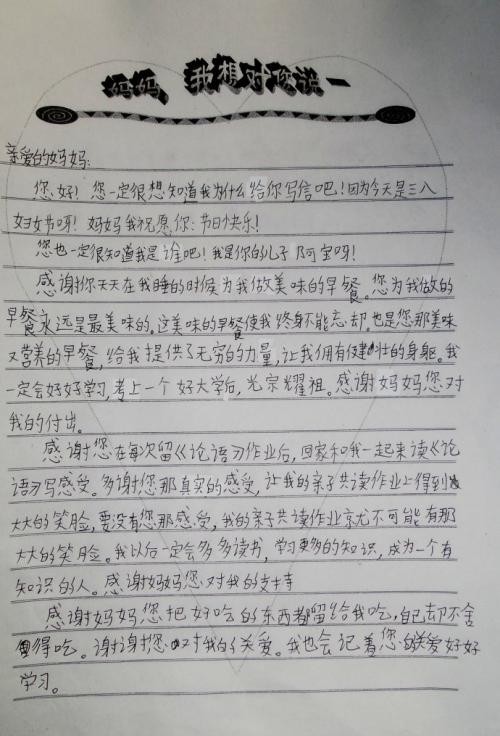 妈妈，我想对您说—
亲爱的妈妈：
您好！您一定很想知道我为什么给你写信吧！因为今天是三八
妇女节呀！妈妈我祝愿你：节日快乐！
您也一定很知道我是谁吧！我是你的儿子阿宝呀！
感谢你天天在我睡的时候为我做美味的早餐。您为我做的
早餐永远是最美味的。这美味的早餐使我终身不能忘却。也是您那美味
又营养的早餐，给我提供了无穷的力量，让我拥有健壮的身躯。我
一定会好好学习，考上一个好大学后，光宗耀祖。感谢妈妈您对
我的付出。
感谢您在每次留《论语》作业后，回家和我一起来读《论
语》写感受。多谢您那真实的感受，让我的亲子共读作业上得到
大大的笑脸，要没有您那感受，我的亲子共读作业就不可能有那
大大的笑脸。我以后一定会多多读书，学习更多的知识，成为一个有
知识的人。感谢妈妈您对我的支持
感谢妈妈您把好吃的东西都留给我吃，自己却不舍
得吃。谢谢您对我的关爱。我也会记着您的关爱好好
学习。